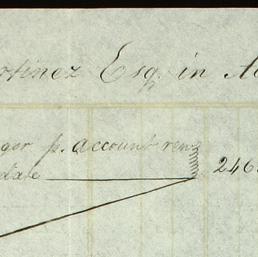 rtinez Esq. in Ac
ger p. account ren
date 246